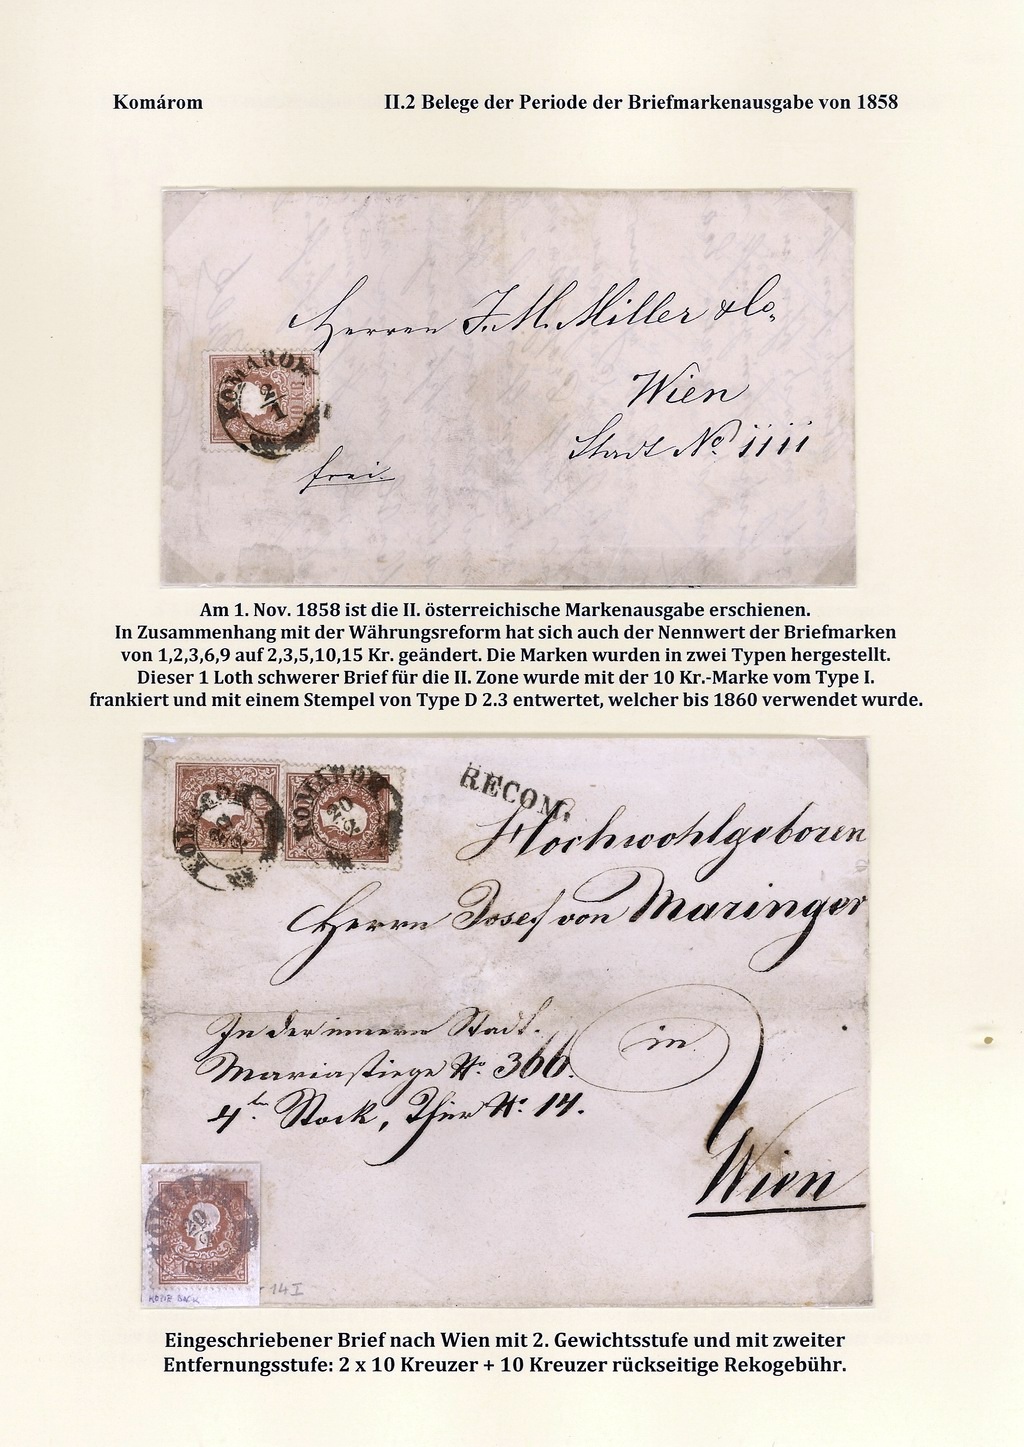 Komárom
II.2 Belege der Periode der Briefmarkenausgabe von 1858
Herren J. M. Miller & Co,
KOMÁROM
2/1
10 KR
Wien
Stadt No 1111
frei.
Am 1. Nov. 1858 ist die II. österreichische Markenausgabe erschienen.
In Zusammenhang mit der Währungsreform hat sich auch der Nennwert der Briefmarken
von 1,2,3,6,9 auf 2,3,5,10,15 Kr. geändert. Die Marken wurden in zwei Typen hergestellt.
Dieser 1 Loth schwerer Brief für die II. Zone wurde mit der 10 Kr.-Marke vom Type I.
frankiert und mit einem Stempel von Type D 2.3 entwertet, welcher bis 1860 verwendet wurde.
KOMÁROM
20
KOMÁROM
20
RECOM.
Hochwohlgeboren
Herrn Josef von Maringer
In der innern Stadt.
in
Mariastiege No. 366.
4ten Stock, Thür No. 14.
Wien
20
14 I
Eingeschriebener Brief nach Wien mit 2. Gewichtsstufe und mit zweiter
Entfernungsstufe: 2 x 10 Kreuzer + 10 Kreuzer rückseitige Rekogebühr.